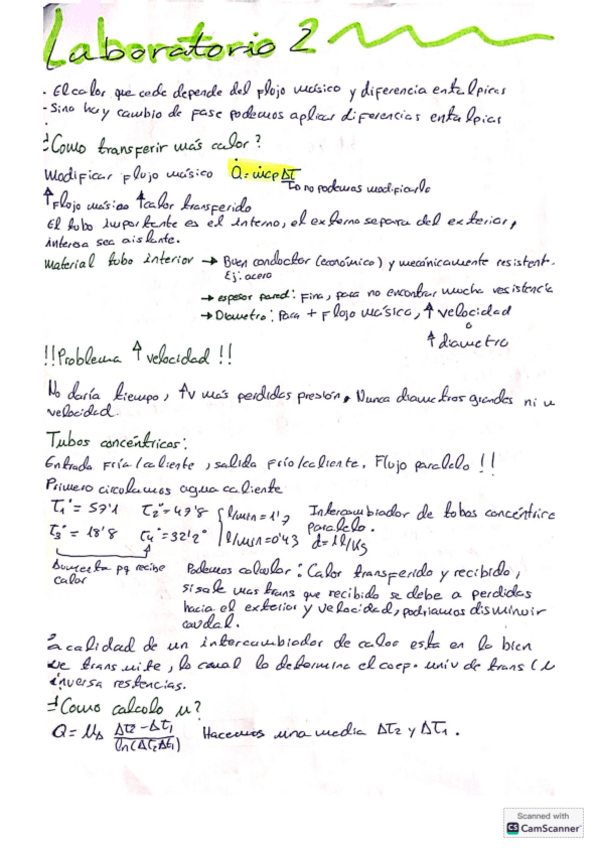 Laboratorio 2
· El calor que cede depende del flujo másico y diferencia entalpicas
- Si no hay cambio de fase podemos aplicar diferencias entalpias
¿Como transferir más calor?
Modificar flujo másico Q̇ = ṁcpΔT
↳ no podemos modificarlo
↑Flujo másico ↑calor transferido
El tubo importante es el interno, el externo separa del exterior,
interesa sea aislante.
Material tubo interior → Buen conductor (económico) y mecánicamente resistent.
Ej: acero
→ espesor pared: Fina, para no encontrar mucha resistencia
→ Diametro: Para + flujo másico, ↑ velocidad
o
↑ diametro
!!Problema ↑ velocidad!!
No daría tiempo, ↑v más perdidas presión, Nunca diametros grandes ni v
velocidad.
Tubos concéntricos:
Entrada Fría/caliente, salida Frío/caliente. Flujo paralelo!!
Primero circulamos agua caliente
T1° = 57'1 T2° = 49'8 l/min = 1'7 Intercambiador de tubos concéntrico
T3° = 18'8 T4° = 32'2° l/min = 0'43 paralelo. d=1l/kg
Aumenta pq recibe
calor
Podemos calcular: Calor transferido y recibido,
si sale mas trans que recibido se debe a perdidas
hacia el exterior y velocidad, podriamos disminuir
caudal.
a calidad de un intercambiador de calor esta en lo bien
que transmite, lo cual lo determina el coep. univ de trans (u
inversa restencias.
¿Como calculo u?
Q = U_A (Δt2 - Δt1)/(ln(Δt2/Δt1)) Hacemos una media Δt2 y Δt1.
Scanned with
CS CamScanner